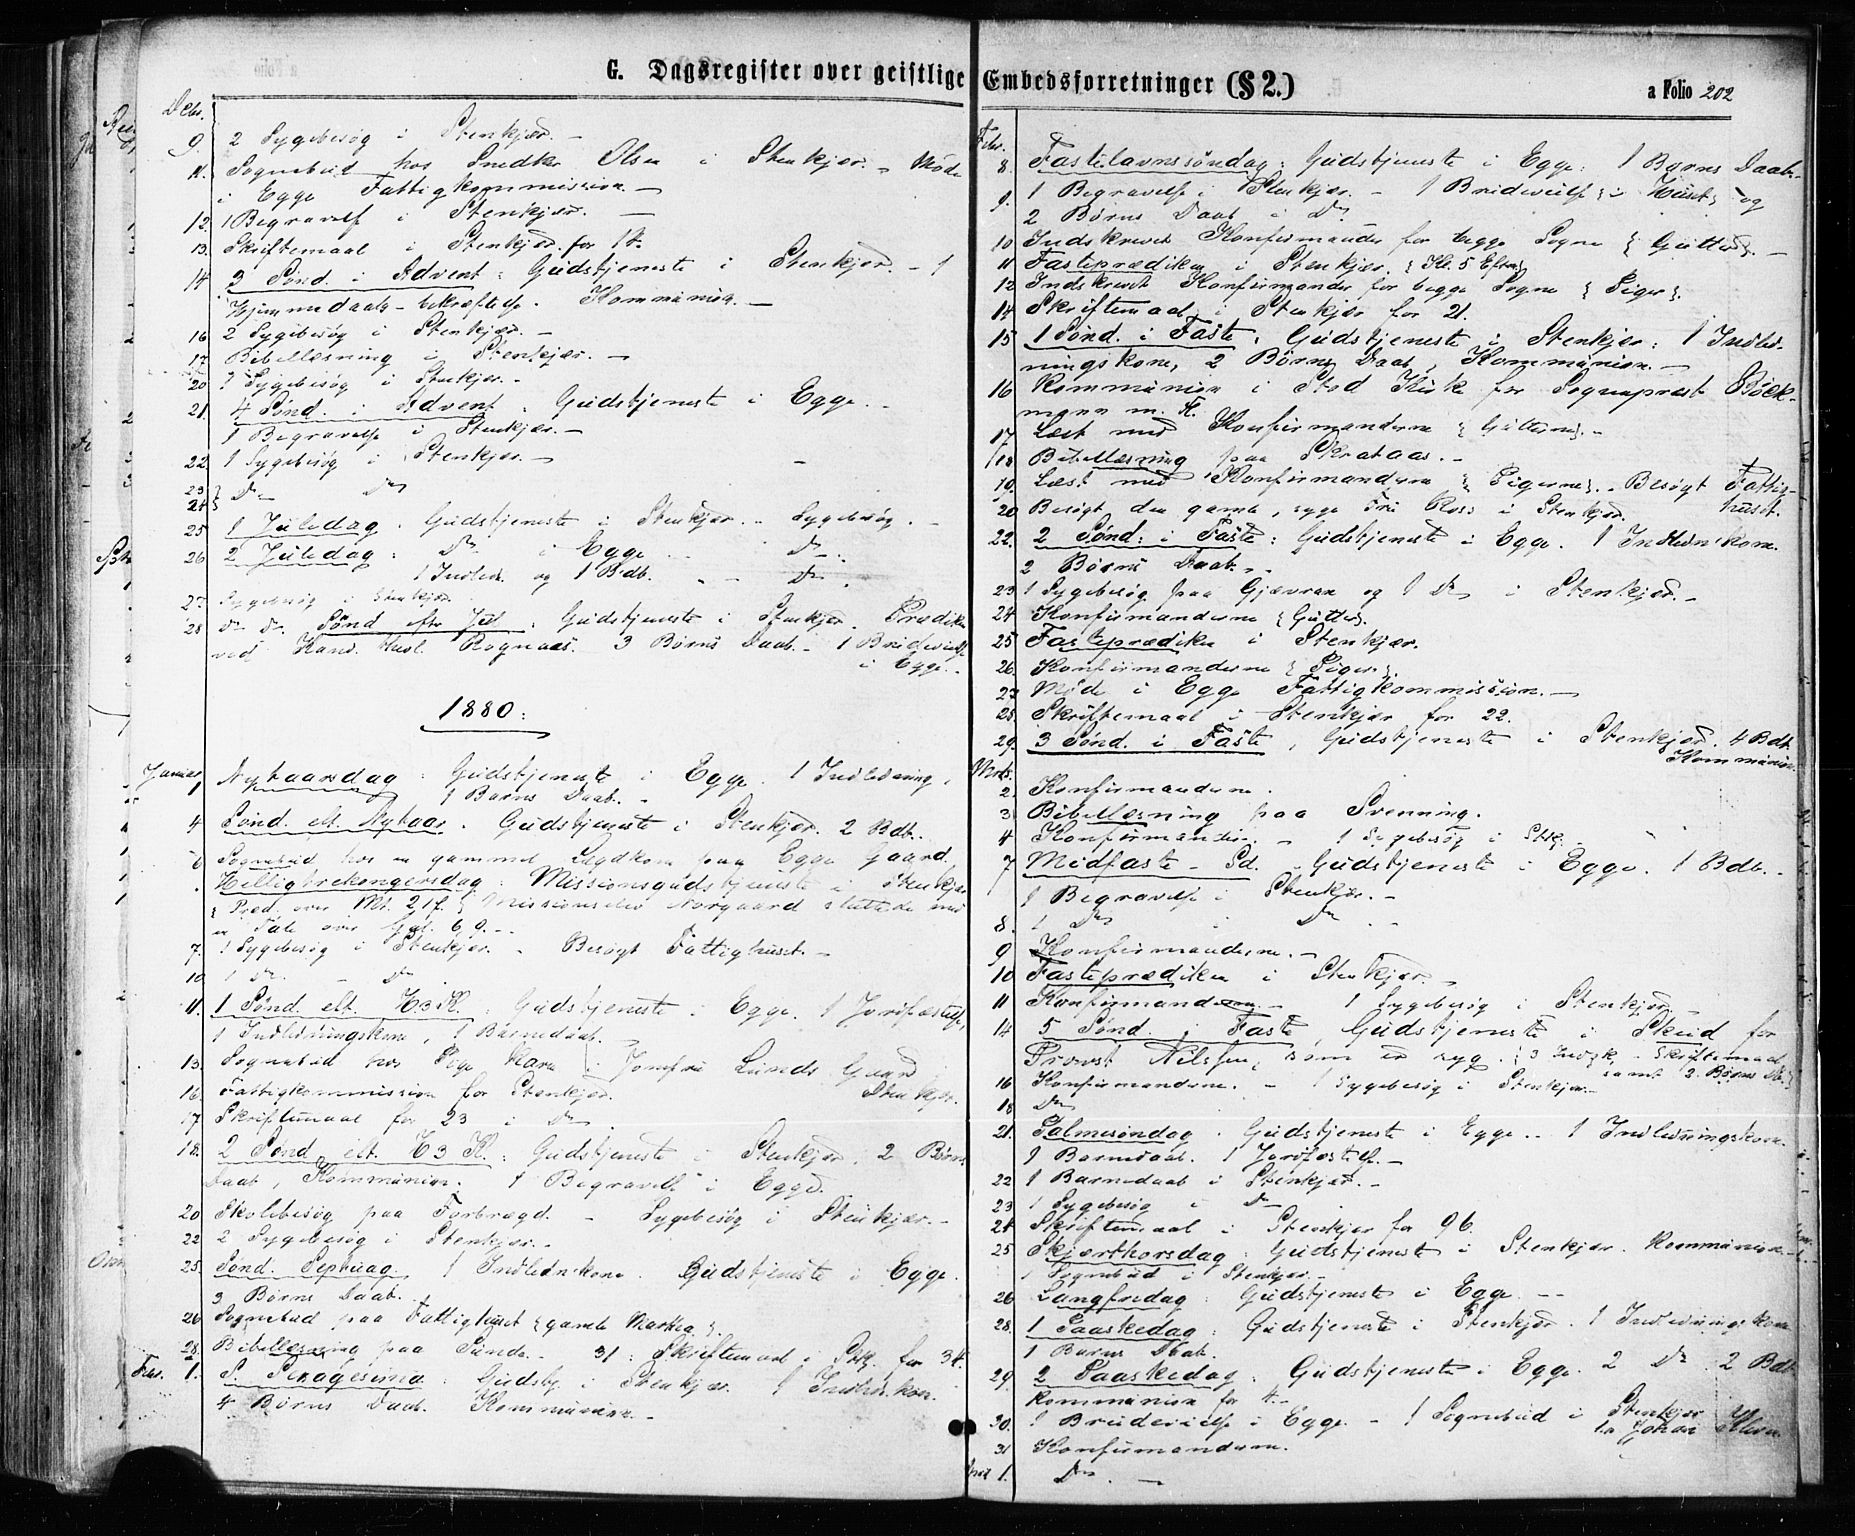 G. Dagsregister over geistlige Embedsforretninger (§ 2.)
a Folio 202
Decbr.
9. 2 Sygebesøg i Stenkjær. –
11. Sognebud hos Snedker Olsen i Stenkjær. – Møde
i Egge Fattigkommission. –
12. 1 Begravelse i Stenkjær. –
13. Skriftemaal i Stenkjær for 17.
14 3 Sønd. i Advent: Gudstjeneste i Stenkjær. – 1
Hjemmedaabs-bekræftelse. Kommunion. –
16 2 Sygebesøg i Stenkjær. –
17. Bibellæsning i Stenkjær. –
20 1 Sygebesøg i Stenkjær. –
21. 4 Sønd. i Advent. Gudstjeneste i Egge. –
1 Begravelse i Stenkjær. –
22. 1 Sygebesøg i Stenkjær. –
23 Do Do
24
25 1 Juledag. Gudstjeneste i Stenkjær. – Sygebesøg. –
26 2 Juledag: Do i Egge Do.
1 Indledn. og 1 Bdb. – Do.
27. Sygebesøg i Stenkjær.
28 Do Do. Sønd. eftr Jul: Gudstjeneste i Stenkjær. Prædiken
ved Kand. theol. Rognaas. 3 Børns Daab. – 1 Brudevielse
i Egge. –
1880:
Januar
1 Nytaarsdag: Gudstjeneste i Egge. 1 Indledning,
1 Barns Daab. –
4 Sønd. eft. Nytaar. Gudstjeneste i Stenkjær. 2 Bdb.
6 Sognebud hos en gammel Lægdkone paa Egge Gaard.
Helligtrekongersdag: Missionsgudstjeneste i Stenkjær
{Præd. over Mt. 2,1 f.} Missionselev Norgaard sluttede med
en Tale over Gal. 6,9. –
7. 1 Sygebesøg i Stenkjær. – Besøgt Fattighuset. –
10 1 Do – Do –
11. 1 Sønd. eft. H3K.: Gudstjeneste. Egge. 1 Jordfæstelse,
1 Indledningskone, 1 Barnedaab.
13. Sognebud hos Pige Kara i Jomfru Lunds Gaard
Stenkjær.
16. Fattigkommission for Stenkjær.
17 Skriftemaal for 23 i Do.
18. 2 Sønd. eft. H3K.: Gudstjeneste i Stenkjær. 2 Børns
Daab, Kommunion. 1 Begravelse i Egge.
20 Skolebesøg paa Forbregd. – Sygebesøg i Stenkjær. –
22 2 Sygebesøg i Stenkjær. –
25. Sønd. Septuag. 1 Indledn.kone. Gudstjeneste i Egge.
3 Børns Daab. –
26 Sognebud paa Fattighuset {gamle Martha}.
28. Bibellæsning paa Sunde. – 31: Skriftemaal i Stkj. for 34.
Febr. 1. S. Sexagesima: Gudstj. i Stenkjær. 1 Indledn.kone.
4 Børns Daab. Kommunion. –
Febr.
8. Fastelavnssøndag: Gudstjeneste i Egge: 1 Barns Daab. –
9. 1 Begravelse i Stenkjær. – 1 Brudevielse {i Huset} og
2 Børns Daab i Do
10 Indskrevet Konfirmander for begge Sogne {Gutter}. –
11 Fasteprædiken i Stenkjær. {Kl. 5 Efterm}
12 Indskrevet Konfirmander for begge Sogne {Piger}.
14 Skriftemaal i Stenkjær for 21.
15 1 Sønd. i Faste. Gudstjeneste i Stenkjær: 1 Indled-
ningskone, 2 Børns Daab, Kommunion. –
16 Kommunion i Stod Kirke for Sogneprest Böck-
mann m. Fl.
17. Læst med Konfirmanderne {Gutterne}. –
18 Bibellæsning paa Skrataas. –
19. Læst med Konfirmanderne {Pigerne}. – Besøgt Fattig-
huset.
20 Besøgt den gamle, syge Fru Ross i Stenkjær.
22. 2 Sønd: i Faste: Gudstjeneste i Egge. 1 Indledn'kone.
2 Børns Daab. –
23 1 Sygebesøg paa Gjævran og 1 Do i Stenkjær. –
24. Konfirmanderne {Gutter}.
25 Fasteprædiken i Stenkjær.
26. Konfirmanderne {Piger}.
27 Møde i Egge Fattigkommission. –
28. Skriftemaal i Stenkjær for 22.
29. 3 Sønd. i Faste, Gudstjeneste i Stenkjær. 4 Bdb.
Kommunion.
Marts.
2. Konfirmanderne.
3 Bibellæsning paa Svenning.
4 Konfirmander. – 1 Sygebesøg i Stkj.
7 Midfaste-Sd. – Gudstjeneste i Egge. 1 Bdb. –
1 Begravelse i Stenkjær. –
8. 1 Do Do –
9 Konfirmanderne. –
10 Fasteprædiken i Stenkjær. –
11 Konfirmanderne – 1 Sygebesøg i Stenkjær.
14 5 Sønd. i Faste, Gudstjeneste i Skeid for
Provst Nilssen, som er syg. {3 Indl.k, – Skriftemaal
samt 2. Børns Db.}
16 Konfirmanderne. – 1 Sygebesøg i Stenkjær. –
18 Do
21. Palmesøndag. Gudstjeneste i Egge. – 1 Indledningskone.
1 Barnedaab. 1 Jordfæstelse. –
22 1 Barnedaab i Stenkjær. –
23 1 Sygebesøg i Do.
24 Skriftemaal i Stenkjær for 96.
25 Skjærthorsdag: Gudstjeneste i Stenkjær. Kommunion. –
1 Sognebud i Stenkjær. –
26 Langfredag: Gudstjeneste i Egge. –
28. 1 Paaskedag: Gudstjeneste i Stenkjær. 1 Indlednings'kone
1 Barns Daab.
29 2 Paaskedag: Gudstjeneste i Egge. 2 Do 2 Bdb.
Kommunion for 4. –
30. 1 Brudevielse i Egge. – 1 Sognebud i Stenkjær
31 Konfirmanderne.
April 1. Do. –